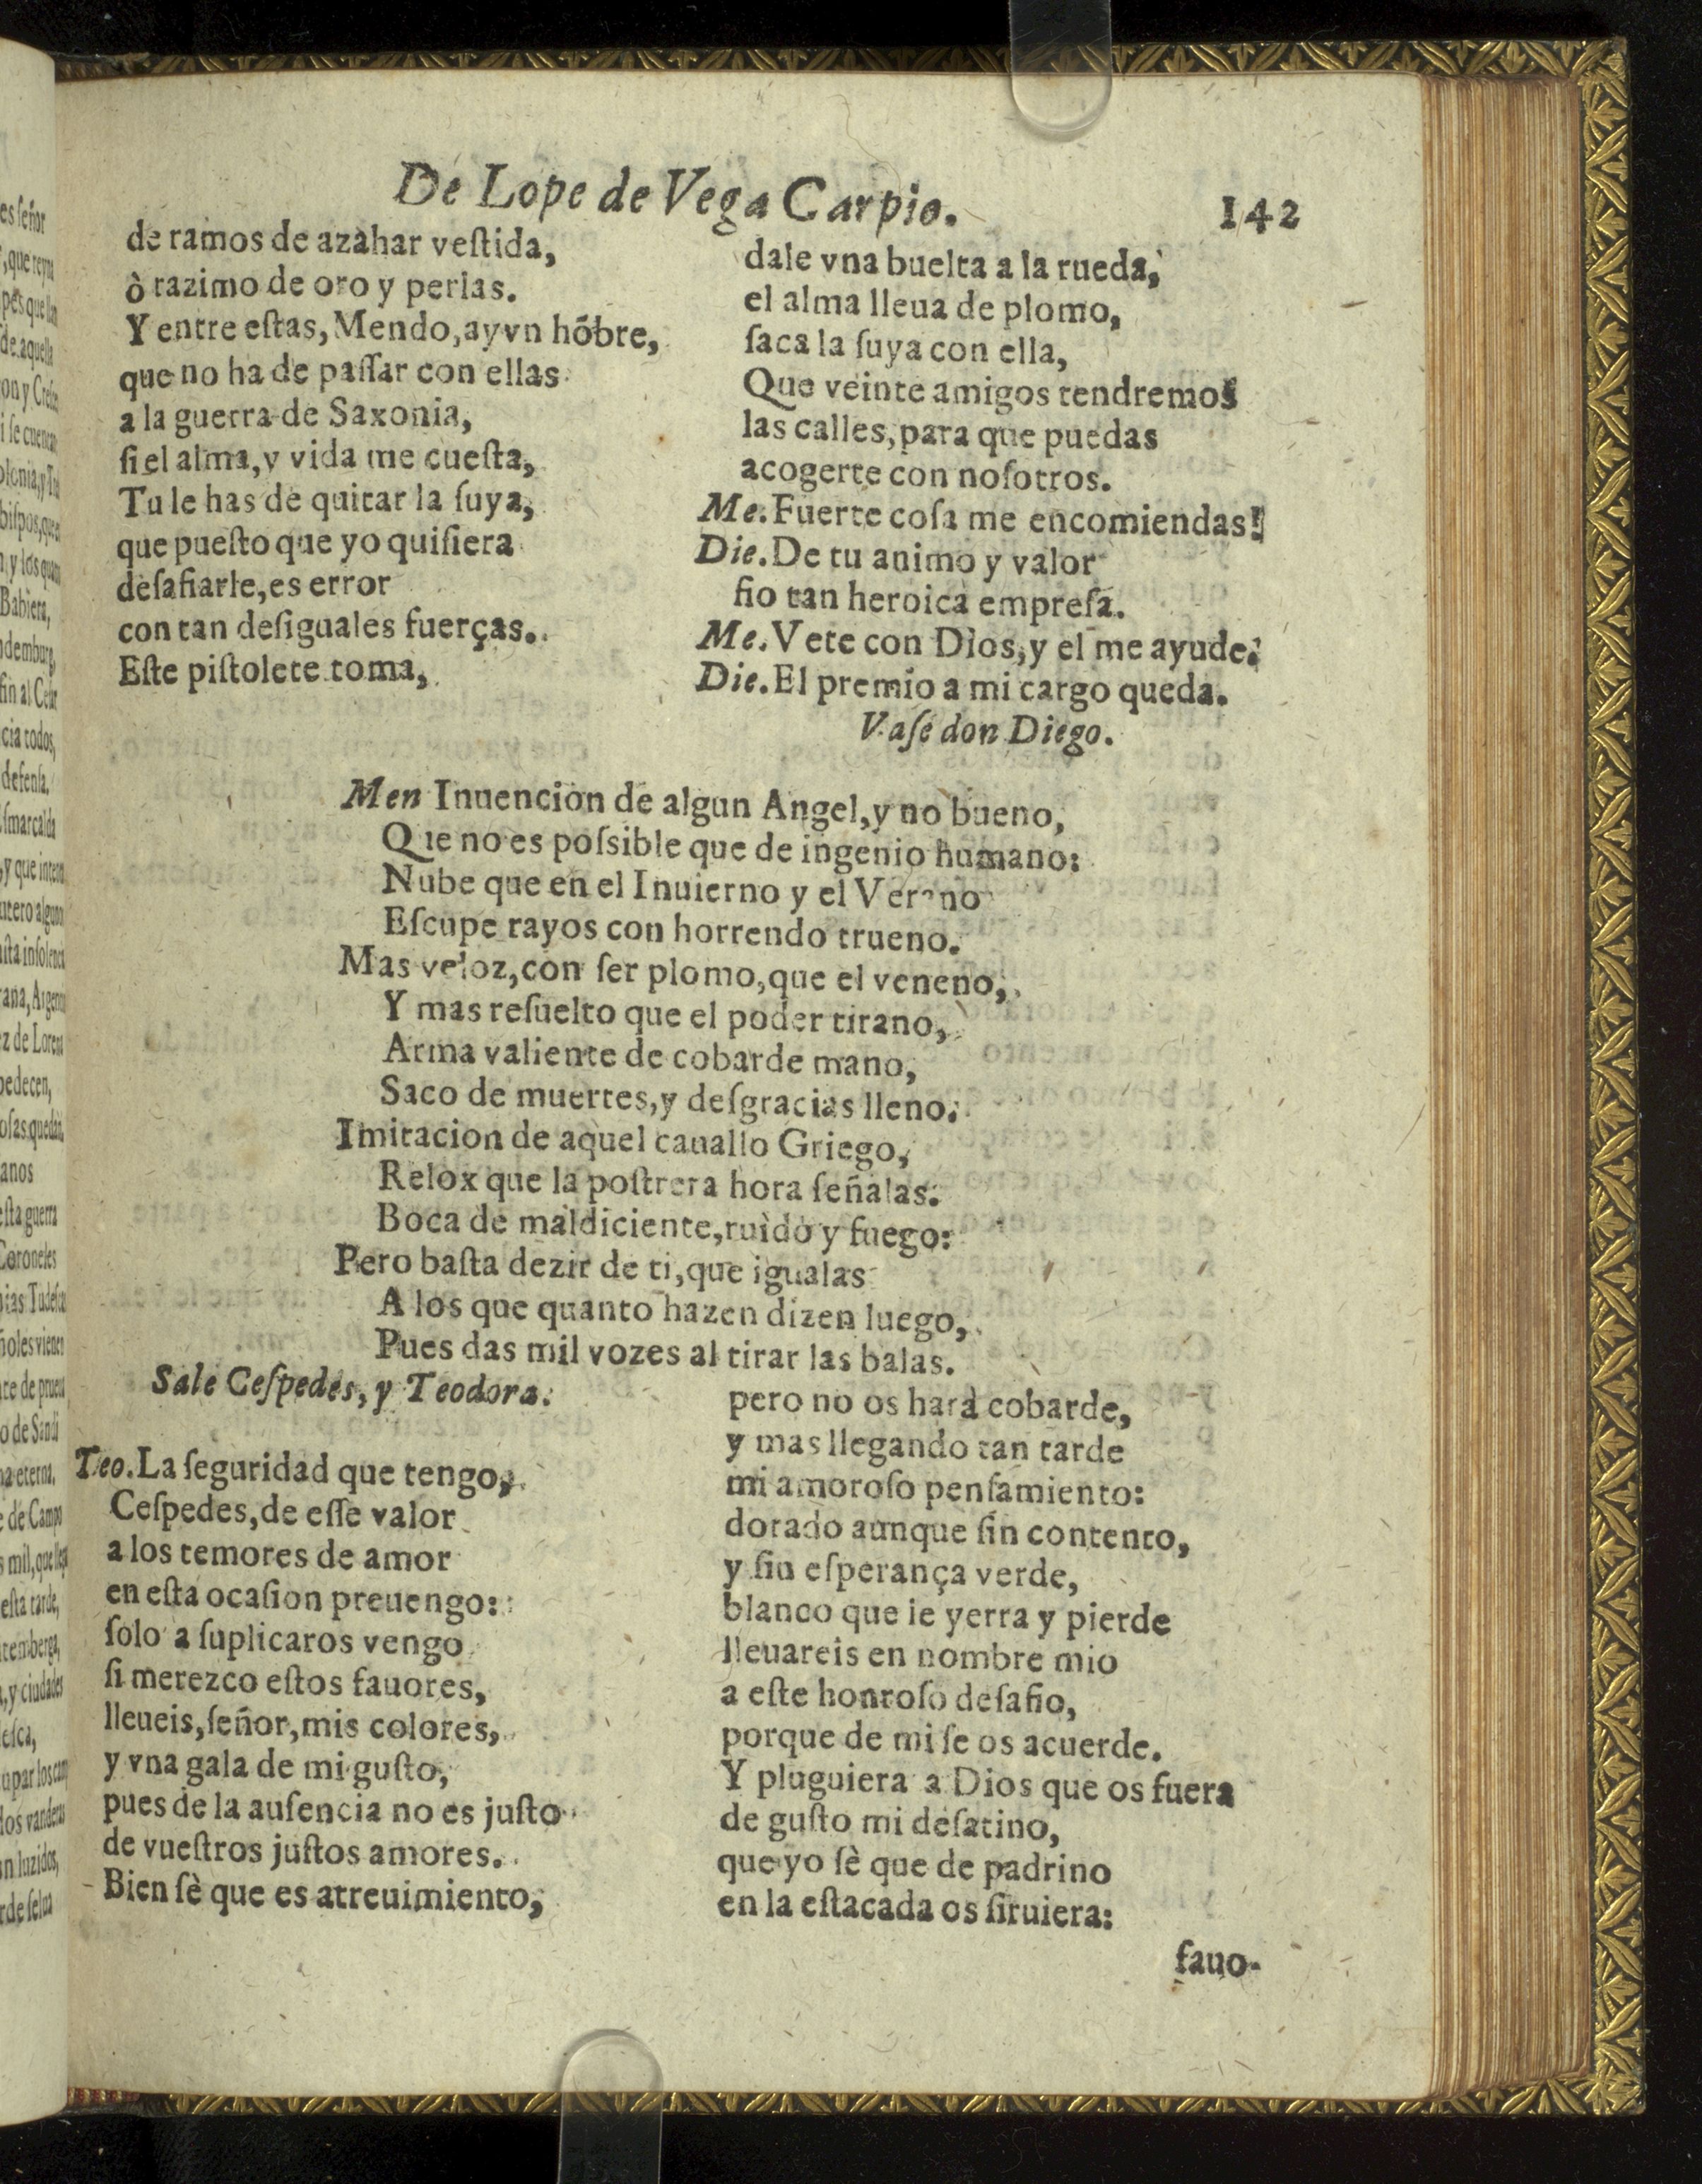 De Lope de Vega Carpio. 142
de ramos de azàhar veſtida,
ò razimo de oro y perlas.
Y entre eſtas, Mendo, ay vn hõbre,
que no ha de paſſar con ellas
a la guerra de Saxonia,
ſi el alma, y vida me cueſta,
Tu le has de quitar la ſuya,
que pueſto que yo quiſiera
deſafiarle, es error
con tan deſiguales fuerças.
Eſte piſtolete toma,
dale vna buelta a la rueda,
el alma lleua de plomo,
ſaca la ſuya con ella,
Que veinte amigos tendremos
las calles, para que puedas
acogerte con noſotros.
Me. Fuerte coſa me encomiendas!
Die. De tu animo y valor
fio tan heroica empreſa.
Me. Vete con Dios, y el me ayude.
Die. El premio a mi cargo queda.
Vaſe don Diego.
Men Inuencion de algun Angel, y no bueno,
Que no es poſsible que de ingenio humano:
Nube que en el Inuierno y el Verano
Eſcupe rayos con horrendo trueno.
Mas veloz, con ſer plomo, que el veneno,
Y mas reſuelto que el poder tirano,
Arma valiente de cobarde mano,
Saco de muertes, y deſgracias lleno.
Imitacion de aquel cauallo Griego,
Relox que la poſtrera hora ſeñalas.
Boca de maldiciente, ruido y fuego:
Pero baſta dezir de ti, que igualas
A los que quanto hazen dizen luego,
Pues das mil vozes al tirar las balas.
Sale Ceſpedes, y Teodora.
Teo. La ſeguridad que tengo,
Ceſpedes, de eſſe valor
a los temores de amor
en eſta ocaſion preuengo:
ſolo a ſuplicaros vengo
ſi merezco eſtos fauores,
lleueis, ſeñor, mis colores,
y vna gala de mi guſto,
pues de la auſencia no es juſto
de vueſtros juſtos amores.
Bien ſè que es atreuimiento,
pero no os harà cobarde,
y mas llegando tan tarde
mi amoroſo penſamiento:
dorado aunque ſin contento,
y ſin eſperança verde,
blanco que ſe yerra y pierde
lleuareis en nombre mio
a eſte honroſo deſafio,
porque de mi ſe os acuerde.
Y pluguiera a Dios que os fuera
de guſto mi deſatino,
que yo ſè que de padrino
en la eſtacada os ſiruiera:
fauo-